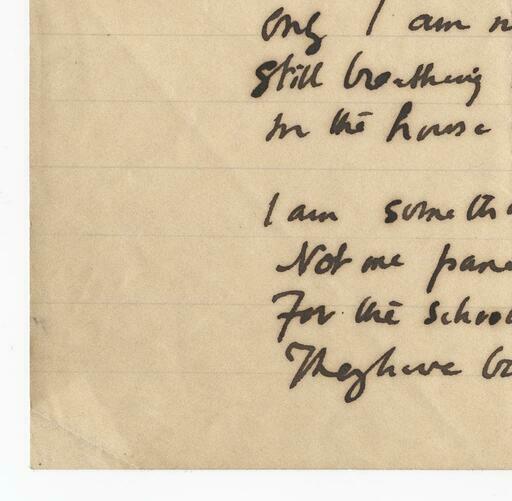 only I am n
Still breathing
In the house
I am someth
Not me pane
For the school
They have b